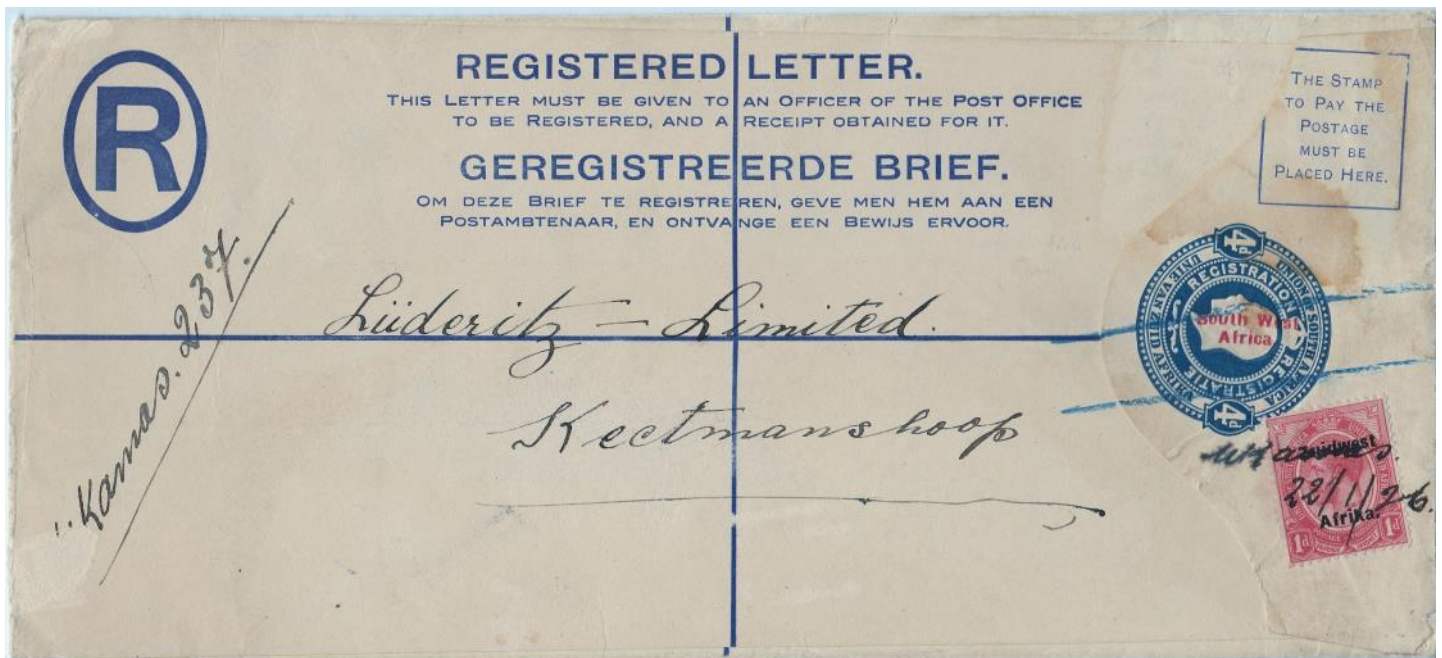 R
REGISTERED LETTER.
THIS LETTER MUST BE GIVEN TO AN OFFICER OF THE POST OFFICE
TO BE REGISTERED, AND A RECEIPT OBTAINED FOR IT.
GEREGISTREERDE BRIEF.
OM DEZE BRIEF TE REGISTREREN, GEVE MEN HEM AAN EEN
POSTAMBTENAAR, EN ONTVANGE EEN BEWIJS ERVOOR.
THE STAMP
TO PAY THE
POSTAGE
MUST BE
PLACED HERE.
Kamas. 237.
Lüderitz - Limited.
Keetmanshoop
4D
UNIE VAN ZUID AFRIKA
UNION OF SOUTH AFRICA
REGISTRATION
REGISTRATIE
South West
Africa
4D
Zuidwest
22/1/26.
Afrika.
1d
1d